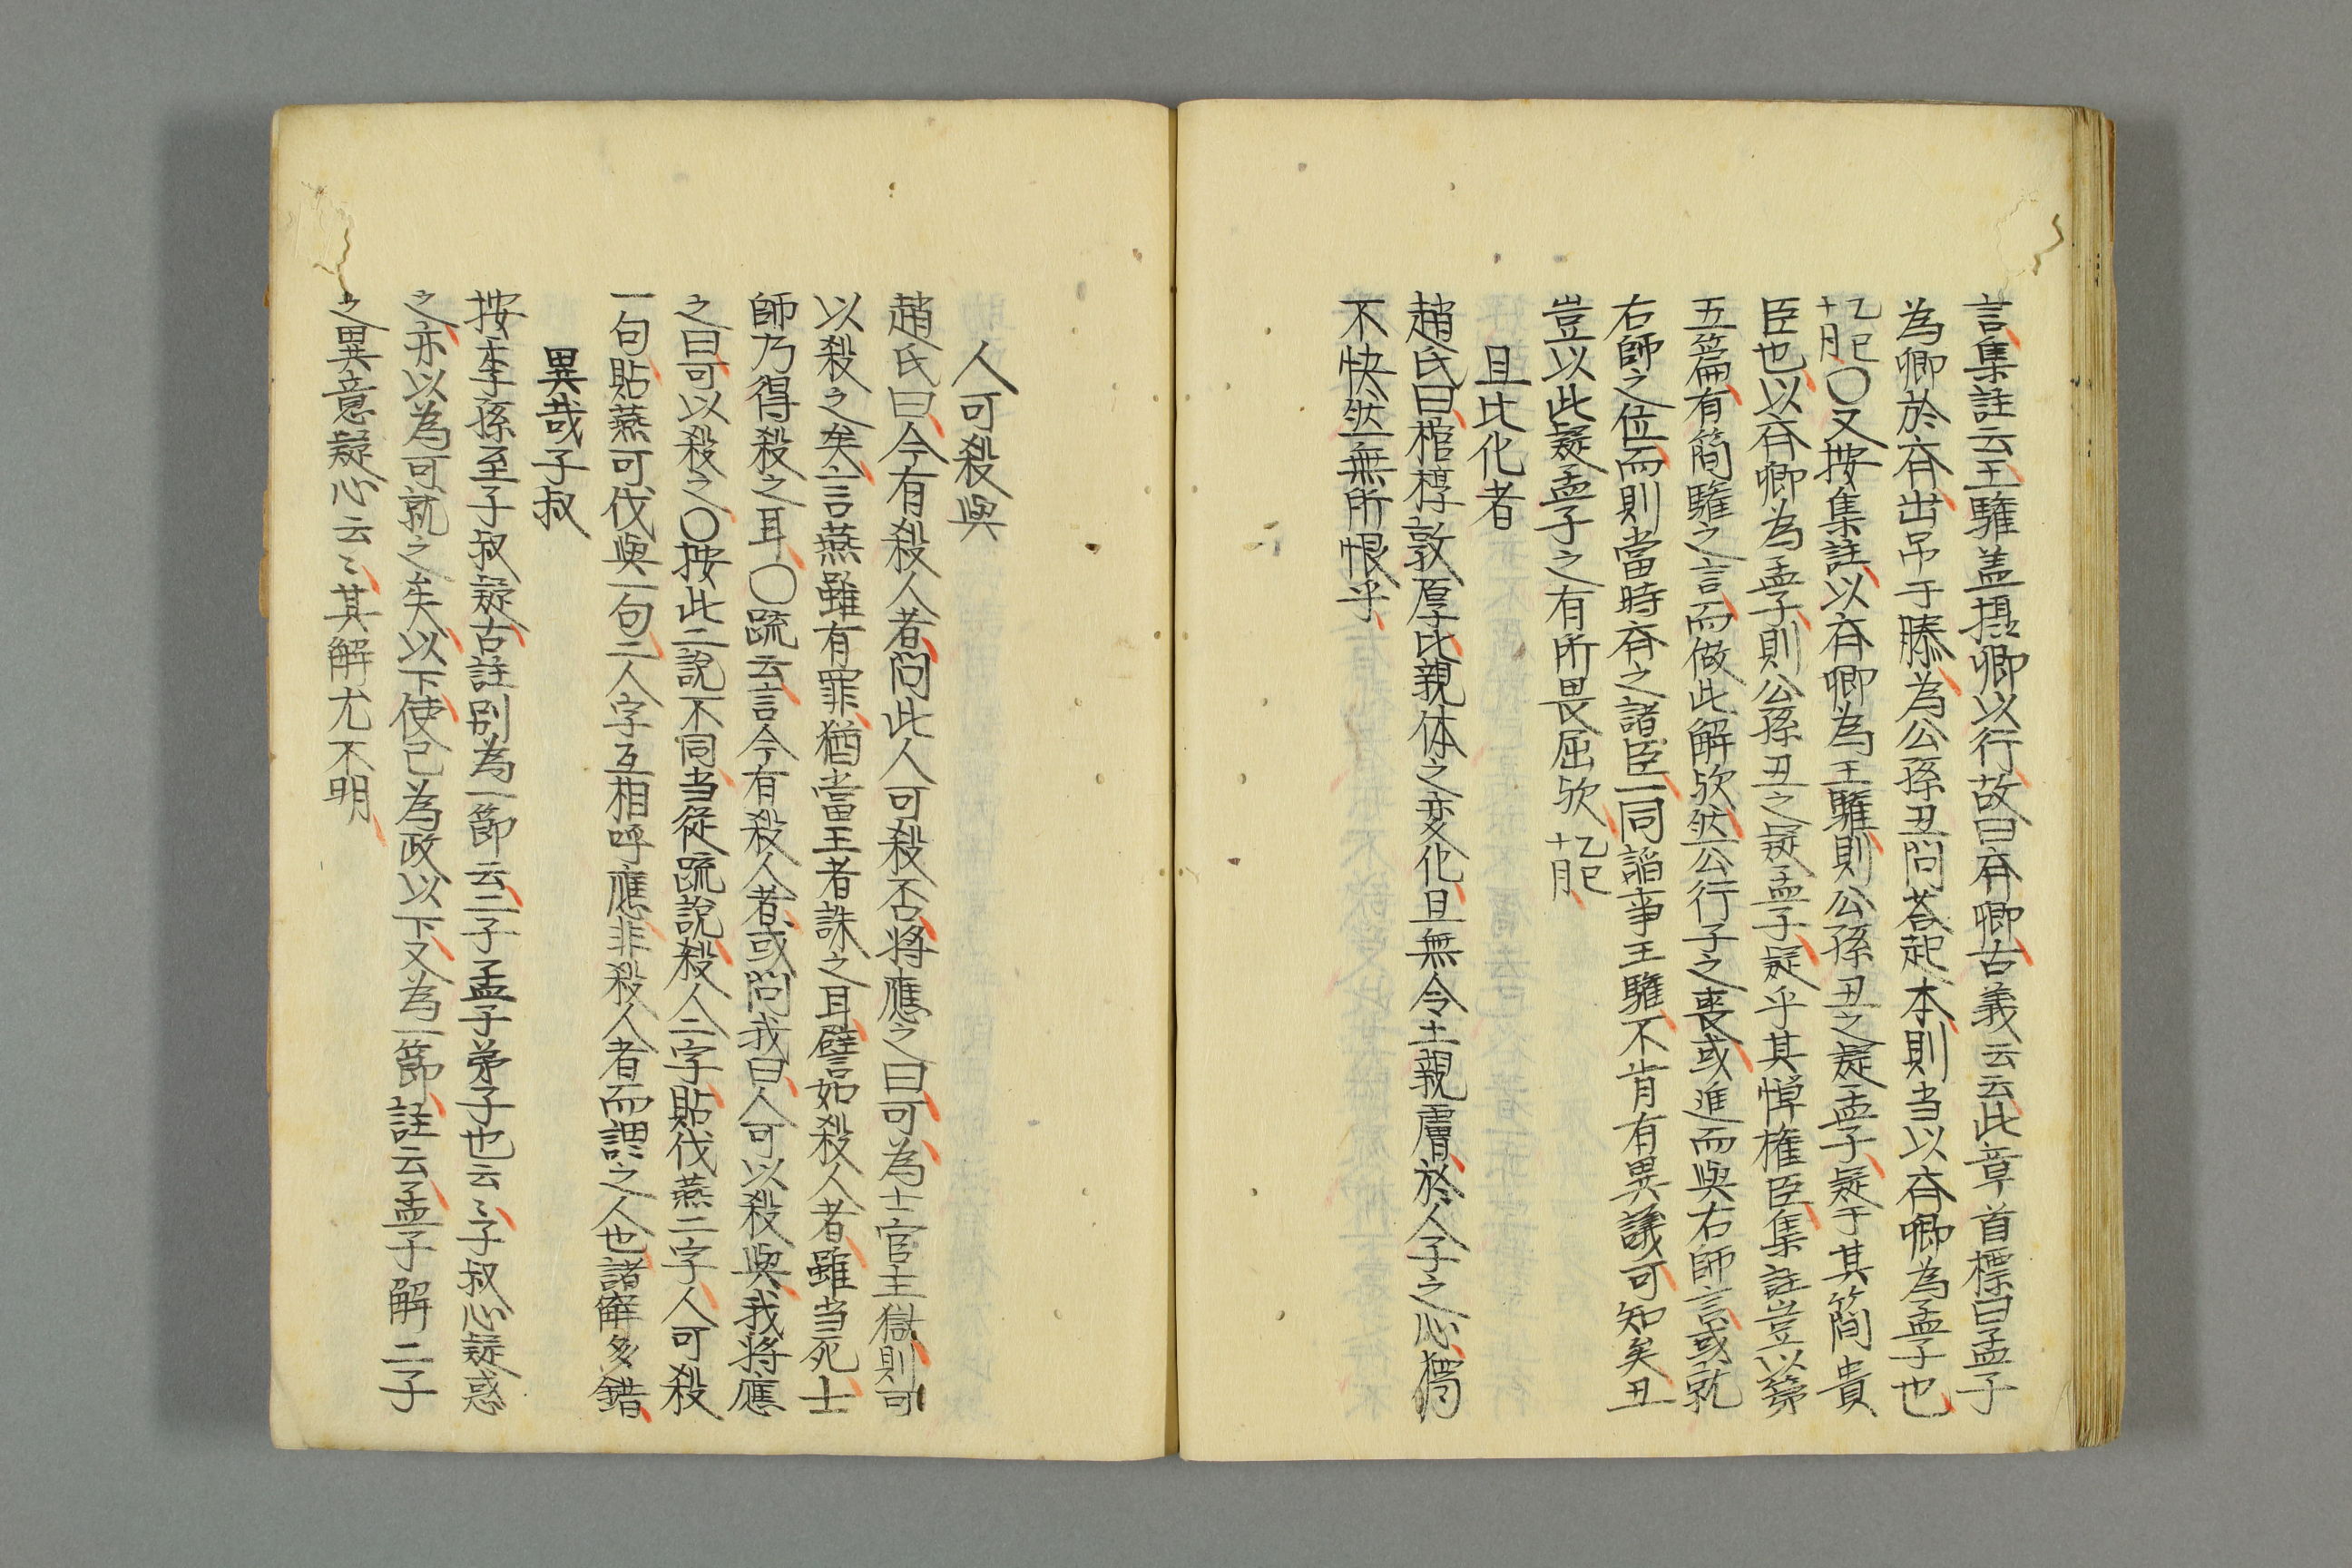 言集註云王驩盖摂卿以行故曰斉卿古義云云此章首標曰孟子
為卿於斉出吊于滕為公孫丑問荅起本則当以斉卿為孟子也
乙巳十月〇又按集註以斉卿為王驩則公孫丑之疑孟子疑于其簡貴
臣也以斉卿為孟子則公孫丑之疑孟子疑乎其憚権臣集註豈以第
五篇有簡驩之言而做此解欤然公行子之喪或進而與右師言或就
右師之位而則當時斉之諸臣一同謟事王驩不肯有異議可知矣丑
豈以此疑孟子之有所畏屈欤乙巳十月
且比化者
趙氏曰棺椁敦厚比親体之変化且無令土親膚於人子之心獨
不快然無所恨乎
人可殺與
趙氏曰今有殺人者問此人可殺否将應之曰可為士官主獄則可
以殺之矣言燕雖有罪猶當王者誅之耳譬如殺人者雖当死士
師乃得殺之耳〇疏云言今有殺人者或問我曰人可以殺與我将應
之曰可以殺之〇按此二說不同当従疏說殺人二字貼伐燕二字人可殺
一句貼燕可伐與一句二人字互相呼應非殺人者而謂之人也諸解多錯
異哉子叔
按季孫至子叔疑古註別為一節云二子孟子弟子也云〻子叔心疑惑
之亦以為可就之矣以下使己為政以下又為一節註云孟子解二子
之異意疑心云〻其解尤不明